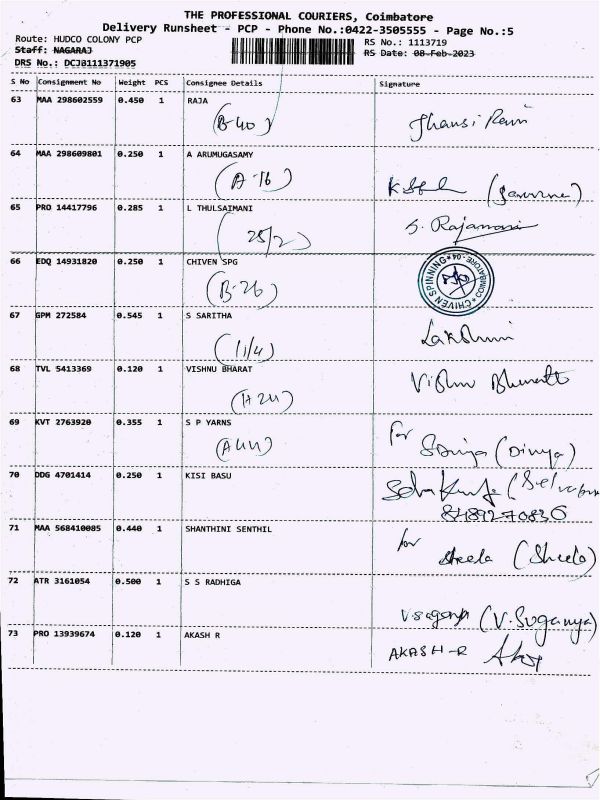 THE PROFESSIONAL COURIERS, Coimbatore
Delivery Runsheet - PCP - Phone No.:0422-3505555 - Page No.:5
Route: HUDCO COLONY PCP RS No.: 1113719
Staff: NAGARAJ RS Date: 08-Feb-2023
DRS No.: DCJ8111371905
S No Consignment No Weight PCS Consignee Details Signature
63 MAA 298602559 0.450 1 RAJA
(B-40) Jhansi Rani
64 MAA 298609801 0.250 1 A ARUMUGASAMY
(A-16)
65 PRO 14417796 0.285 1 L THULSAIMANI
(25/2) S. Rajamani
66 EDQ 14931820 0.250 1 CHIVEN SPG
(B-26) CHIVEN SPINNING COIMBATORE-04
67 GPM 272584 0.545 1 S SARITHA
(11/4) Lakshmi
68 TVL 5413369 0.120 1 VISHNU BHARAT
(H24) Vishnu Bharath
69 KVT 2763920 0.355 1 S P YARNS
(A44) for (Divya)
70 DDG 4701414 0.250 1 KISI BASU
8489270836
71 MAA 568410085 0.440 1 SHANTHINI SENTHIL
for Sheela (Sheela)
72 ATR 3161054 0.500 1 S S RADHIGA
(V.Suganya)
73 PRO 13939674 0.120 1 AKASH R
AKASH-R